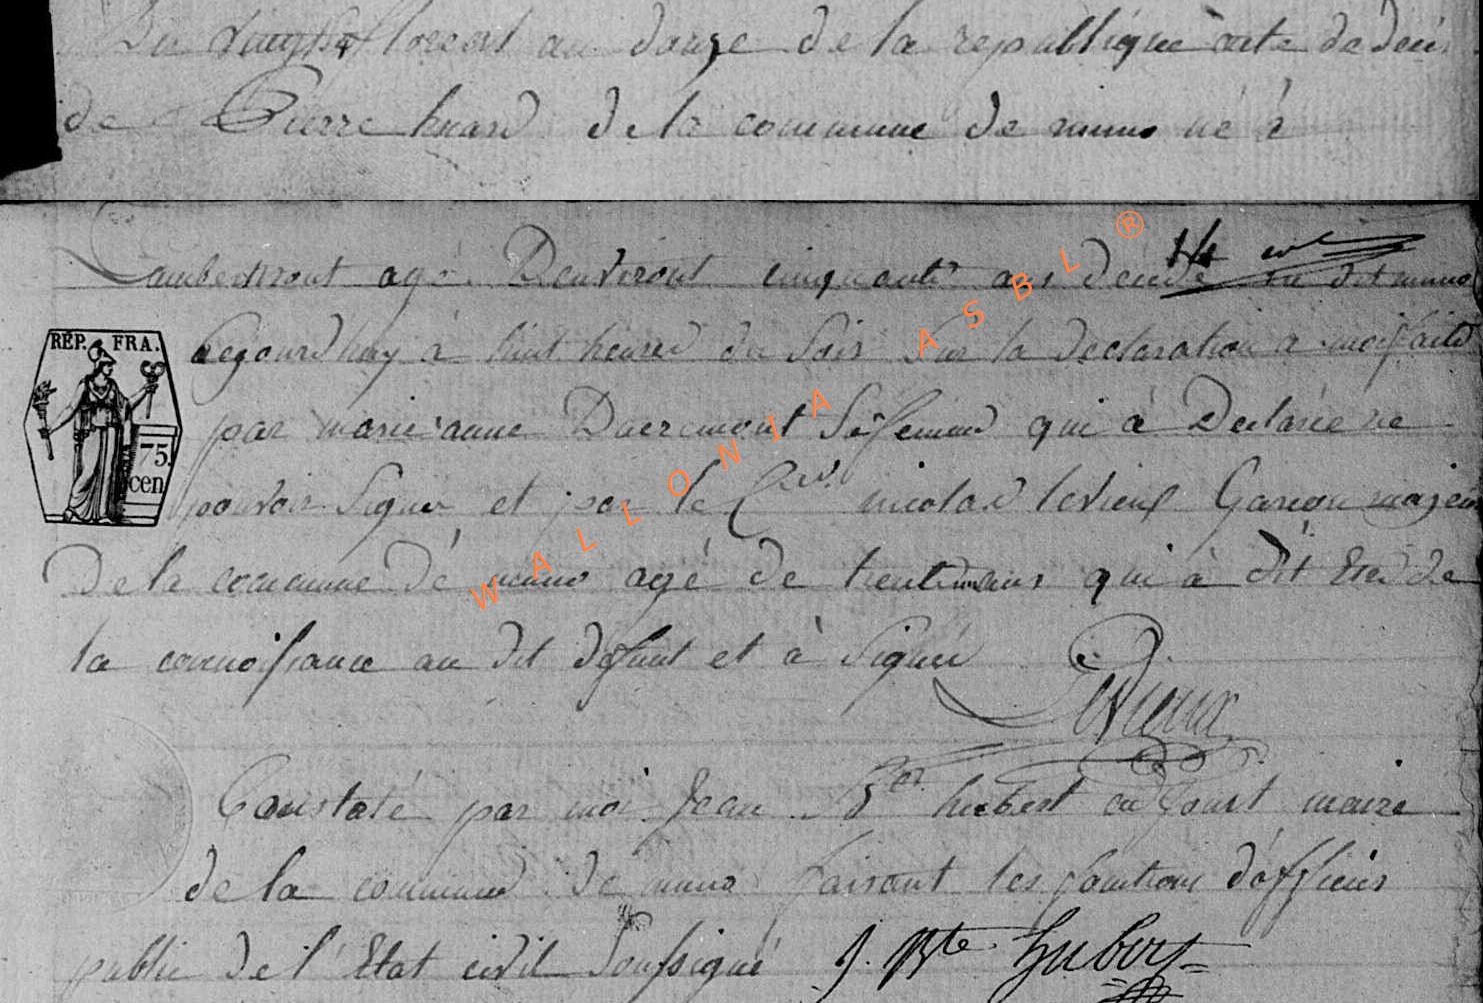 Du vingt 4 floreal an douze de la republique acte de deces
de Pierre huard de la commune de muno né à
Lambermont agé Denviront cinquante ans decede au dit muno
14
Aejourdhuy à huit heures du soir Sur la declaration a moi faite
RÉP. FRA.
par marie anne Dacremont Sa femme qui à Declarée ne
75.
cen
pouvoir Signer et par le Cen. nicolas levieux Garçon majeur
De la commune dé muno agé de trente ans qui à dit Etre de
la connoissance au dit défunt et à Signée
Levieux
WALLONIA ASBL ®
Constaté par moi Jean Bte hubert adjoint maire
de la commune de muno faisant les fonctions d'officiers
public de l'Etat civil Soussigné J. Bte Hubert